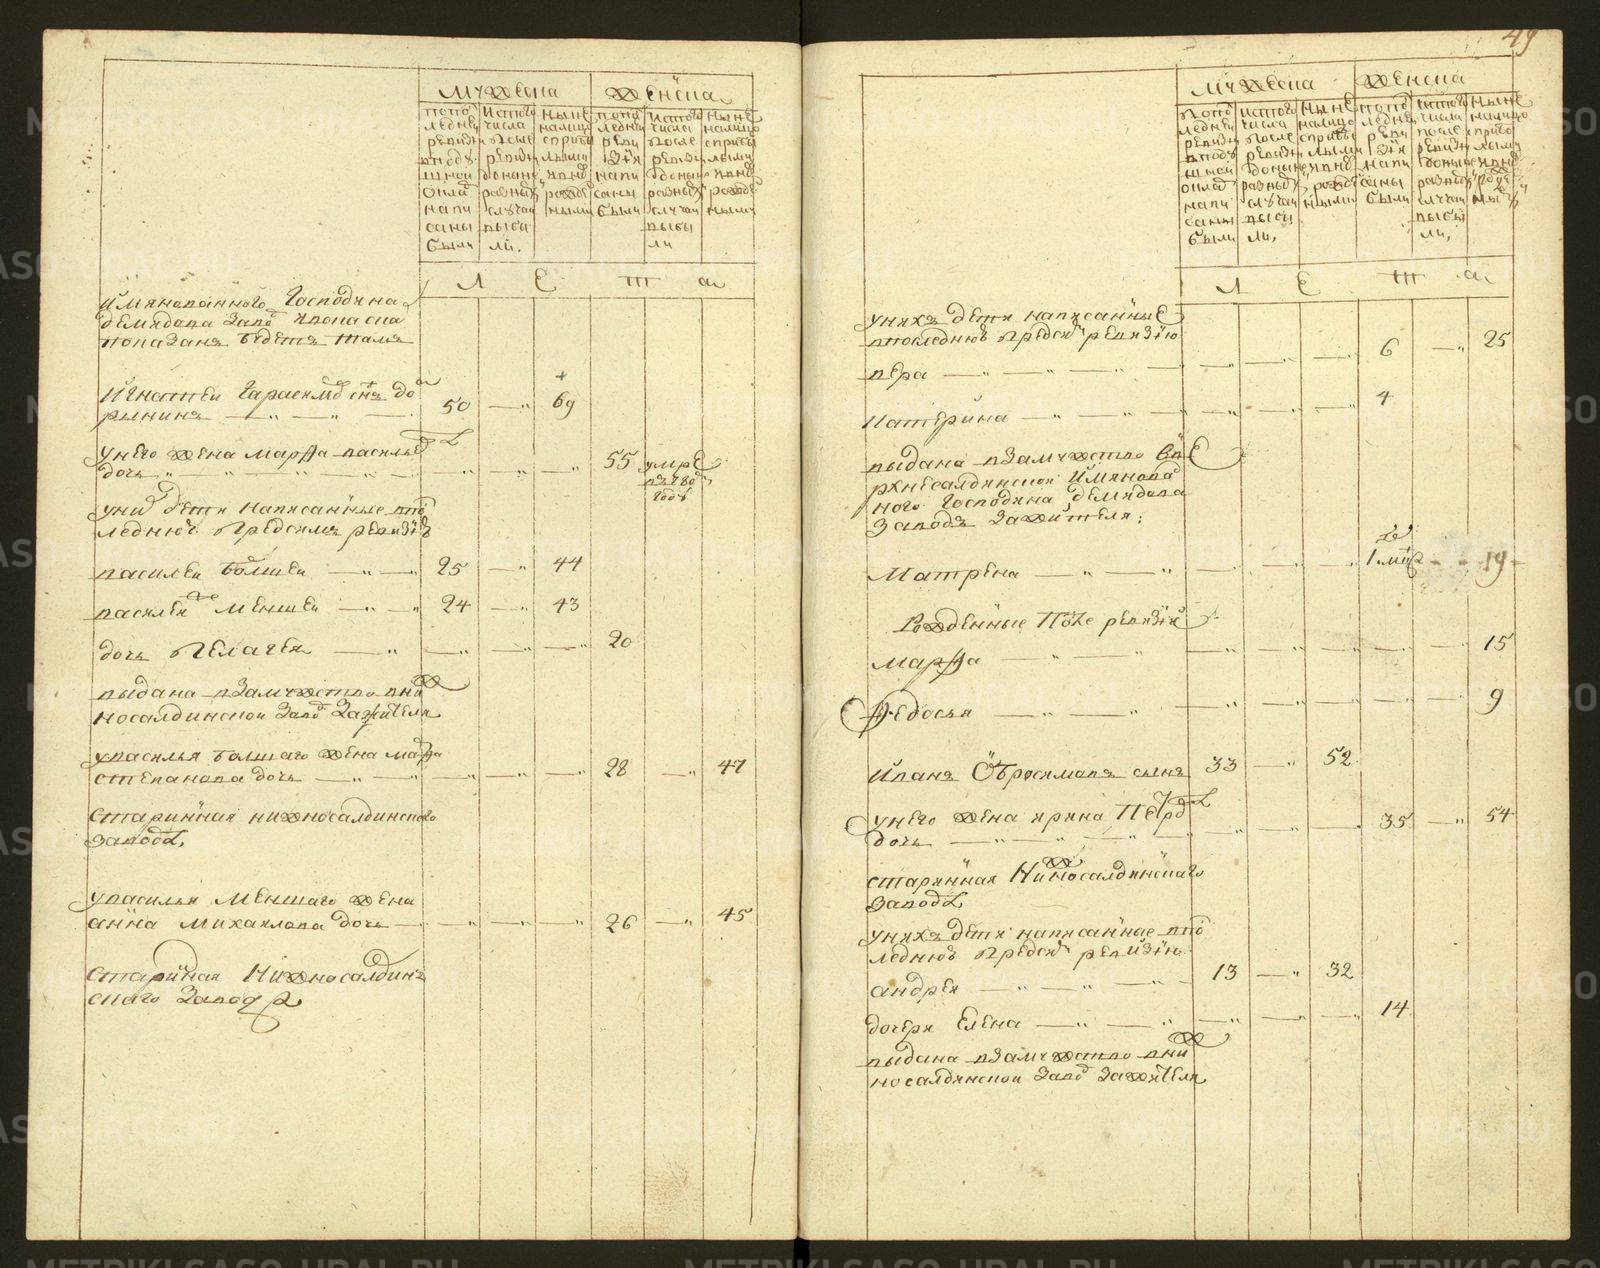 49
мужеска
женска
по по
ледней
ревизи
в поду
шной
оклад
напи
саны
были
ис того
числа
после
ревизи
доныне
разных
случаи
выбы
ли.
ныне
налицо
с прибы
лыми
вновь
рожде
ными
по по
ледней
реви
зiи
напи
саны
были
ис того
числа
после
ревизи
доныне
разных
случаи
выбы
ли
ныне
налицо
с прибы
лыми
вновь
рожде
ными
Л Е Т а
имянованного господина
демидова завод
показана будет тамъ
Игнатеи Гарасимов снъ до
рынинъ 50 69
у него жена марфа василье
дочь 55 умре
в 1780
годъ
у них дети написанные в по
леднюю предсимъ ревизiю
василеи болшеи 25 44
василеи меншеи 24 43
дочь Пелагея 20
выдана в замужство в ни
носалдинскои завод за жителя
у василья болшаго жена марфа
степанова дочь 28 47
старинная нижносалдинского
завода,
у василья меншаго жена
анна михаилова дочь 26 45
старинная Нижносалдин
скаго завода
мужеска
женска
по по
ледней
ревизи
в поду
шной
оклад
напи
саны
были
ис того
числа
после
ревизи
доныне
разных
случаи
выбы
ли,
ныне
налицо
с прибы
лыми
вновь
рожде
ными
по по
ледней
реви
зiя
напи
саны
были
ис того
числа
после
ревизи
доныне
разных
случаи
выбы
ли,
ныне
налицо
с прибы
лыми
вновь
рожде
ными
Л Е Т а
у нихъ дети написанные
в последнюю предсим ревизiю
вера 6 25
Катерина 4
выдана в замужство в ве
рхнесалдинскои имянова
ного господина демидова
заводъ за жителя;
Матрена 1 19
Рожденные после ревизiи
Марфа 15
Федосья 9
Иванъ Обросимовъ сынъ 33 52
у него жена ирина Петро
дочь 35 54
старинная Нижносалдинскаго
завода
у нихъ дети написанные в по
леднюю предсим ревизiю
андреи 13 32
дочери Елена 14
выдана в замужство в ни
носалдинскои завод за жителя